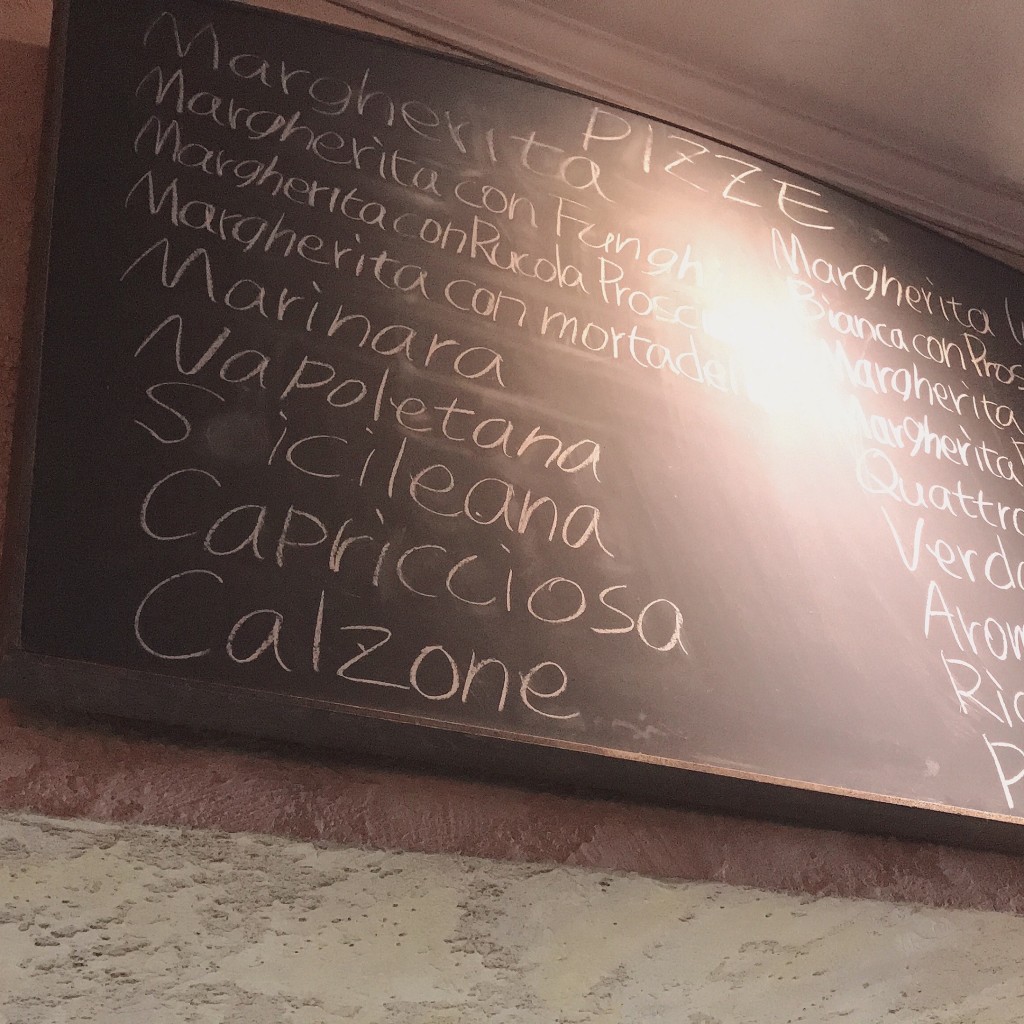 PIZZE
Margherita
Margherita con Funghi
Margherita con Rucola Prosc
Margherita con mortadel
Marinara
Napoletana
Sicileana
Capricciosa
Calzone
Margherita
Bianca con Pros
Margherita
Margherita
Quattro
Verd
Arom
Ric
P